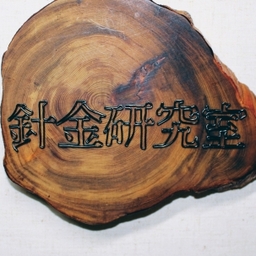 針金研究室